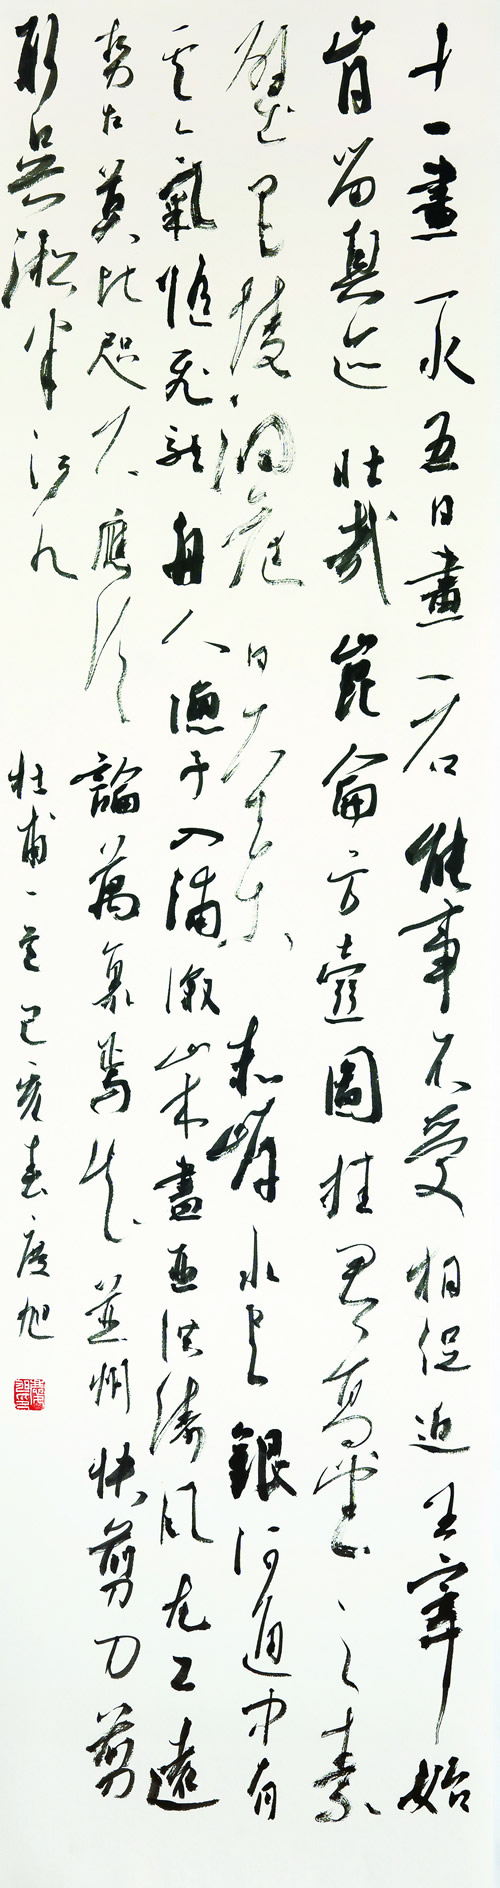 十一畫一水五日畫一石能事不受相促迫王宰始
肯留真迹壯哉崑侖方壺圖挂君高堂之素
壁巴陵洞庭日本東赤岸水與銀河通中有
雲氣隨飛龍舟人漁子入浦漵山木盡亞洪濤風尤工遠
勢古莫比咫尺應須論萬里焉得並州快剪刀剪
取吳淞半江水 杜甫一首己亥春旭